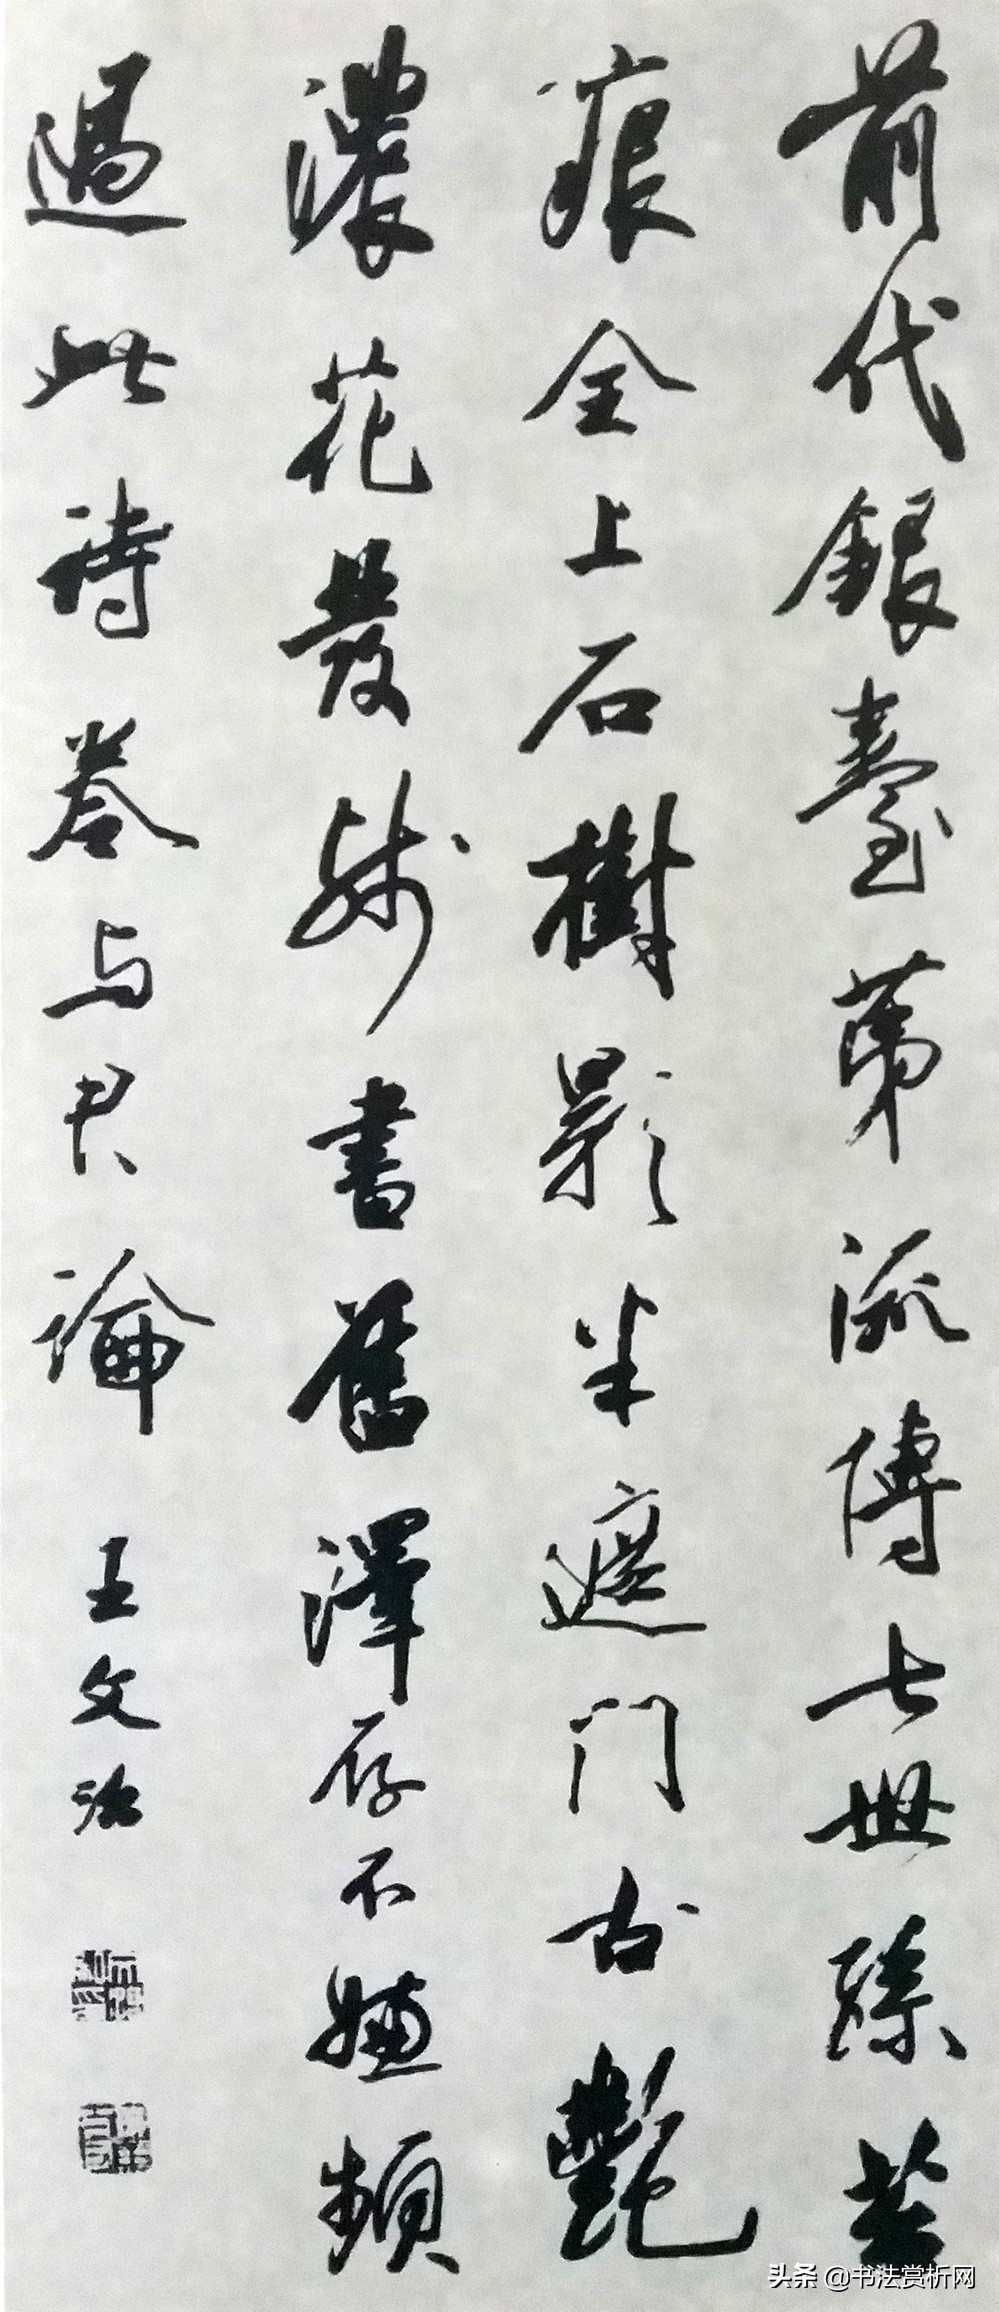 前代銀臺第流傳七世孫苔
痕全上石樹影半遮門古艷
濃花發殘書舊澤存不嫌頻
過此詩卷与君論
王文治
头条 @书法赏析网